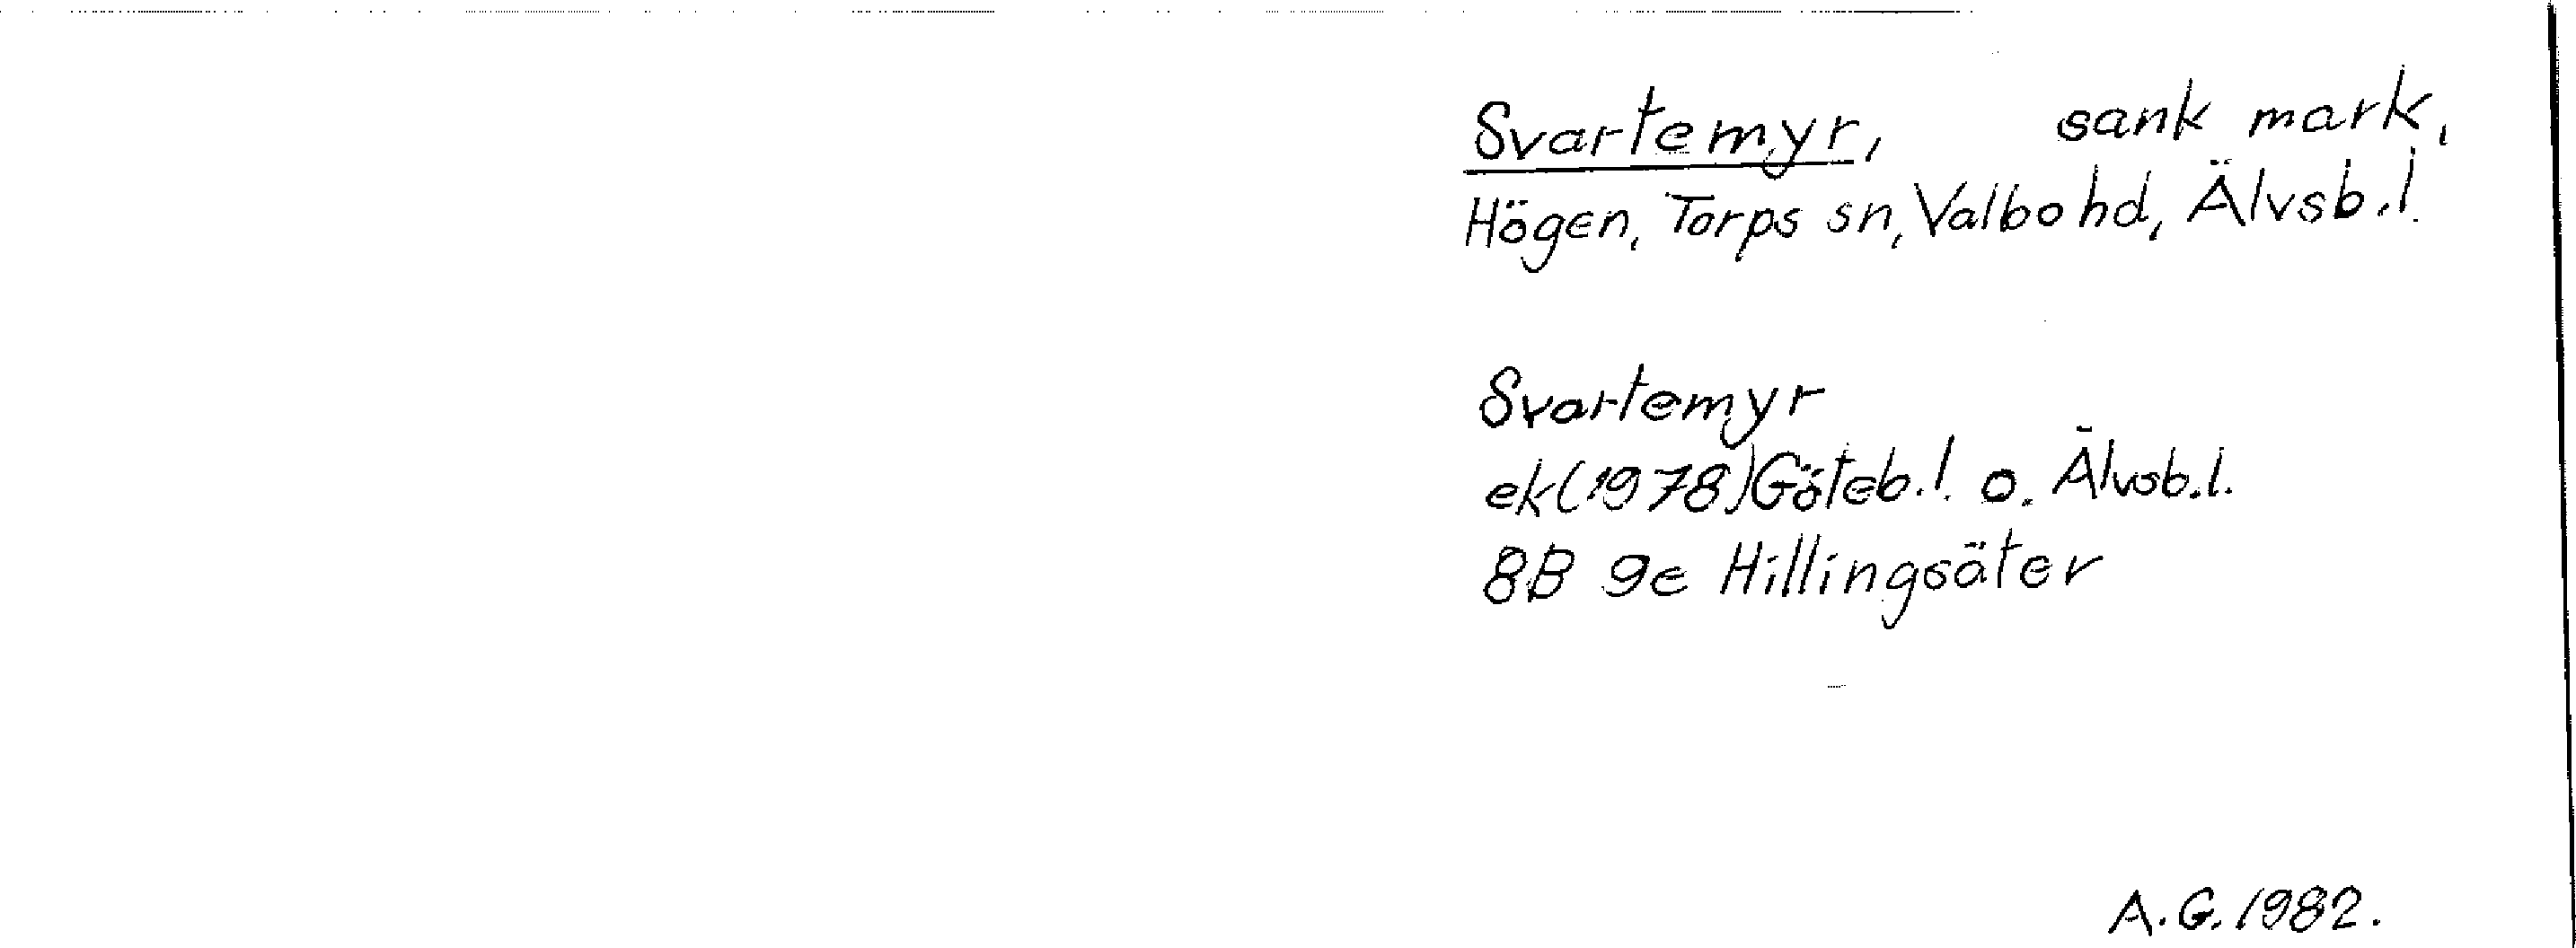 Svartemyr, sank mark,
Högen, Torps sn, Valbo hd, Älvsb.l.
Svartemyr
ek (1978) Göteb.l. o. Älvsb.l.
8B 9e Hillingsäter
A.G. 1982.